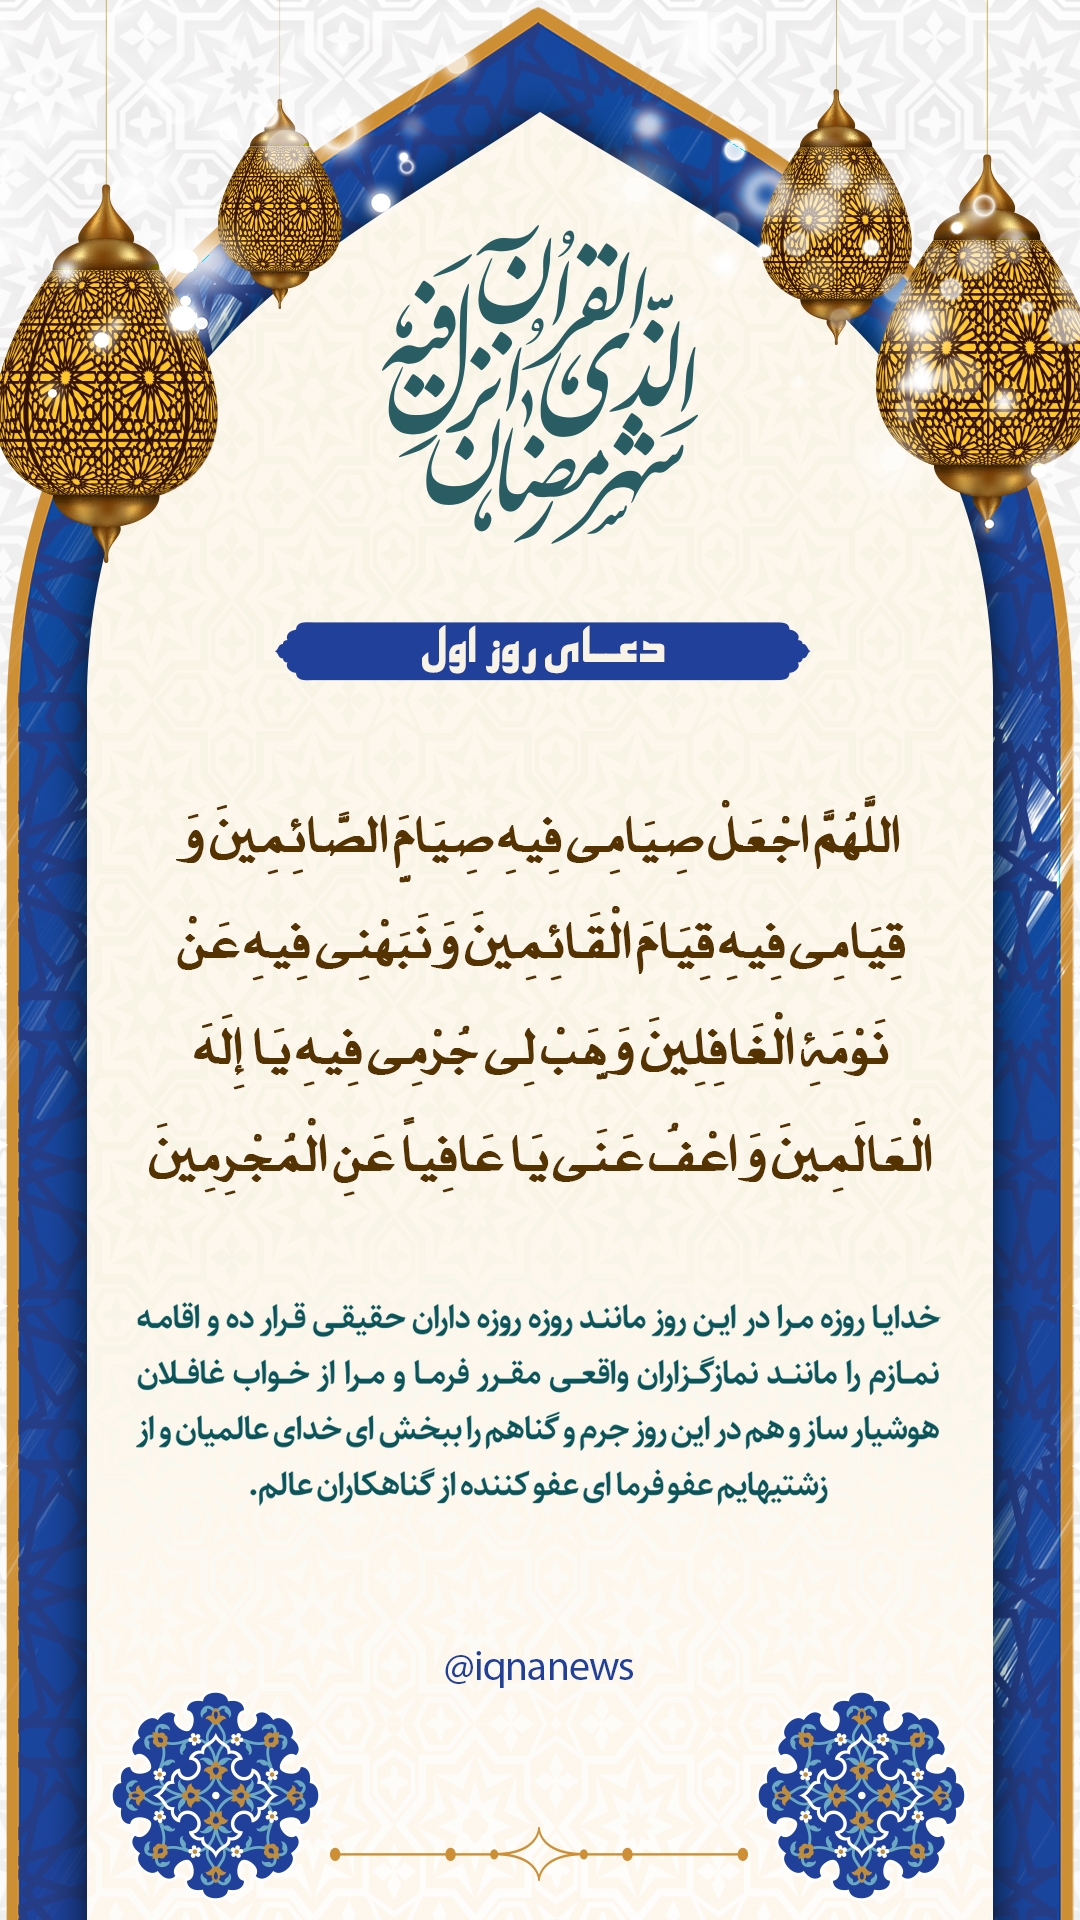 شهر رمضان الّذی انزل فیه القرآن
دعای روز اول
اللَّهُمَّ اجْعَلْ صِیَامِی فِیهِ صِیَامَ الصَّائِمِینَ وَ
قِیَامِی فِیهِ قِیَامَ الْقَائِمِینَ وَ نَبَهْنِی فِیهِ عَنْ
نَوْمَۀِ الْغَافِلِینَ وَ هَبْ لِی جُرْمِی فِیهِ یَا إِلَهَ
الْعَالَمِینَ وَ اعْفُ عَنَی یَا عَافِیاً عَنِ الْمُجْرِمِینَ
خدایا روزه مرا در این روز مانند روزه روزه داران حقیقی قرار ده و اقامه
نمازم را مانند نمازگزاران واقعی مقرر فرما و مرا از خواب غافلان
هوشیار ساز و هم در این روز جرم و گناهم را ببخش ای خدای عالمیان و از
زشتیهایم عفو فرما ای عفو کننده از گناهکاران عالم.
@iqnanews